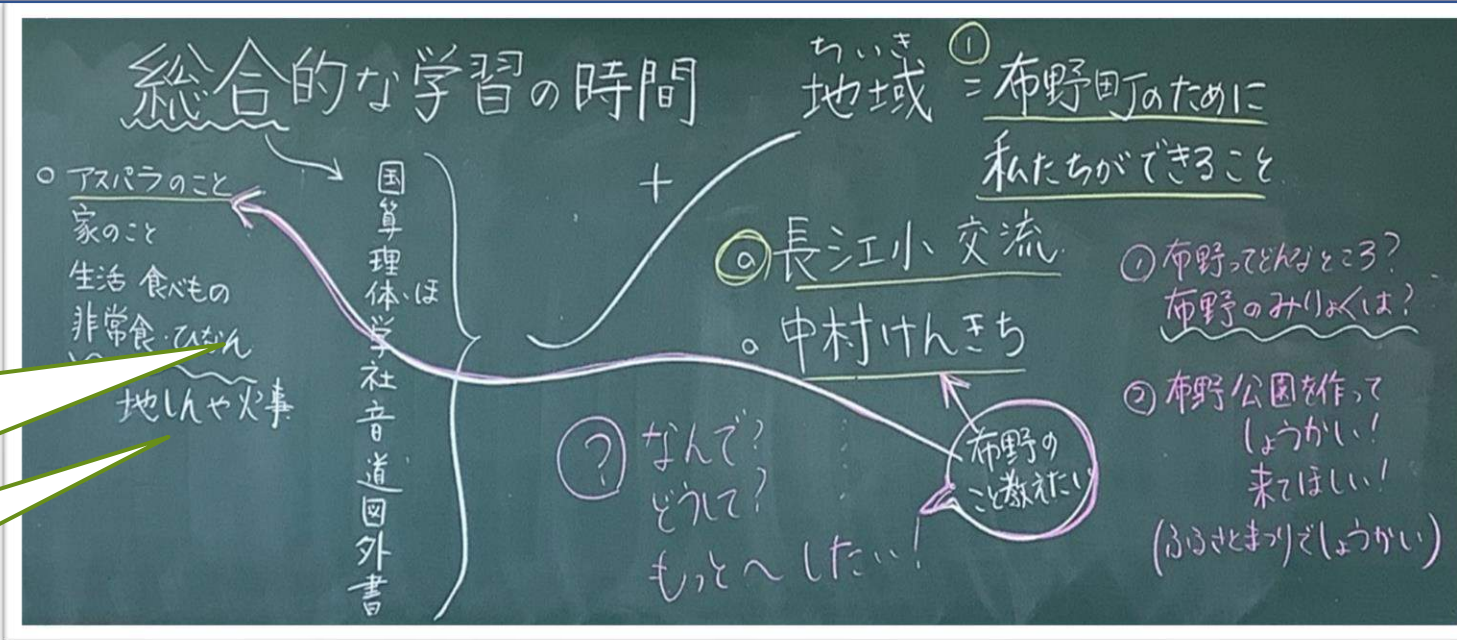 総合的な学習の時間
ちいき
地域
①
=布野町のために
私たちができること
○ アスパラのこと
家のこと
生活 食べもの
非常食・ひなん
地しんや火事
国
算
理
体、ほ
学
社
音
道
図
外
書
+
◎長江小 交流
○中村けんきち
布野の
こと教えたい
? なんで?
どうして?
もっと〜したい!
①布野ってどんなところ?
布野のみりょくは?
②布野公園を作って
しょうかい!
来てほしい!
(ふるさとまつりでしょうかい)